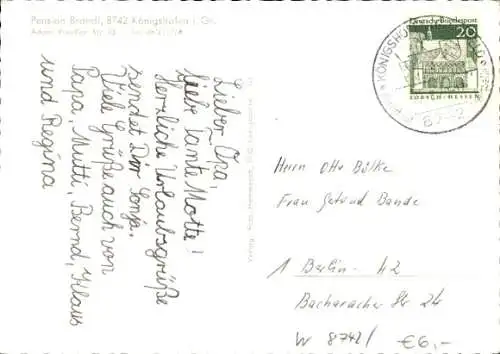 Pension Brandl, 8742 Königshofen i. Gr.
Lieber Opa,
liebe Tante Motte!
Herzliche Urlaubsgrüße
sendet Dir Sonja.
Viele Grüße auch von
Papa, Mutti, Bernd, Klaus
und Regina
Deutsche Bundespost
20
LORSCH-HESSEN
KÖNIGSHO
Herrn Otto Bölke
Frau Gertrud Bande
1 Berlin - 42
Bacharacher Str 24
W 8742/ €6,-